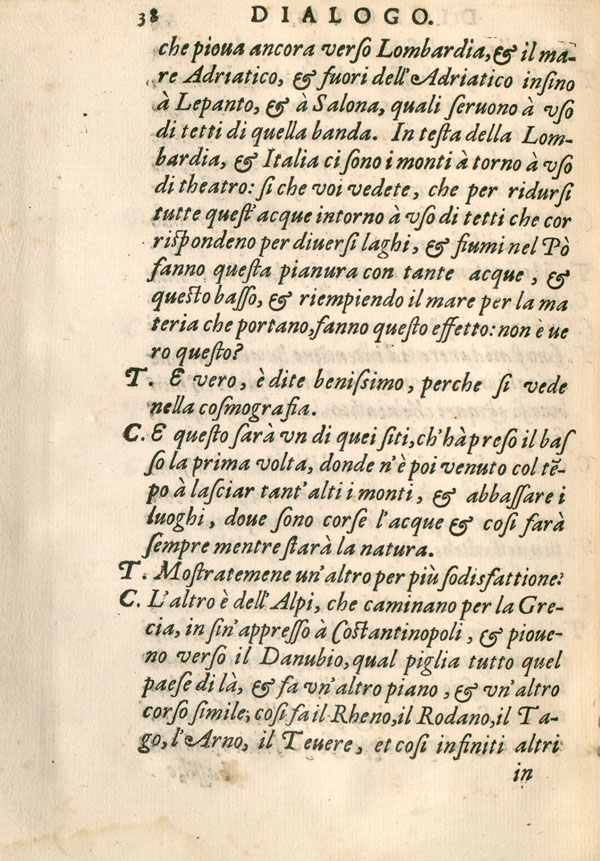 38 DIALOGO.
che pioua ancora verſo Lombardia, & il ma-
re Adriatico, & fuori dell'Adriatico inſino
à Lepanto, & à Salona, quali ſeruono à vſo
di tetti di quella banda. In teſta della Lom-
bardia, & Italia ci ſono i monti à torno à vſo
di theatro: ſi che voi vedete, che per ridurſi
tutte queſt'acque intorno à vſo di tetti che cor
riſpondeno per diuerſi laghi, & fiumi nel Pò
fanno queſta pianura con tante acque, &
queſto baſſo, & riempiendo il mare per la ma
teria che portano, fanno queſto effetto: non è ue
ro queſto?
T. E vero, è dite beniſſimo, perche ſi vede
nella coſmografia.
C. E queſto ſarà vn di quei ſiti, ch'hà preſo il baſ
ſo la prima volta, donde n'è poi venuto col tẽ-
po à laſciar tant'alti i monti, & abbaſſare i
luoghi, doue ſono corſe l'acque & coſi farà
ſempre mentre ſtarà la natura.
T. Moſtratemene un'altro per più ſodisfattione?
C. L'altro è dell'Alpi, che caminano per la Gre-
cia, in ſin'appreſſo à Coſtantinopoli, & pioue-
no verſo il Danubio, qual piglia tutto quel
paeſe di là, & fa vn'altro piano, & vn'altro
corſo ſimile; coſi fa il Rheno, il Rodano, il Ta-
go, l'Arno, il Teuere, et coſi infiniti altri
in